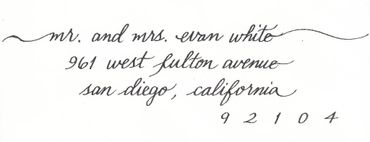 mr. and mrs. evan white
961 west fulton avenue
san diego, california
9 2 1 0 4